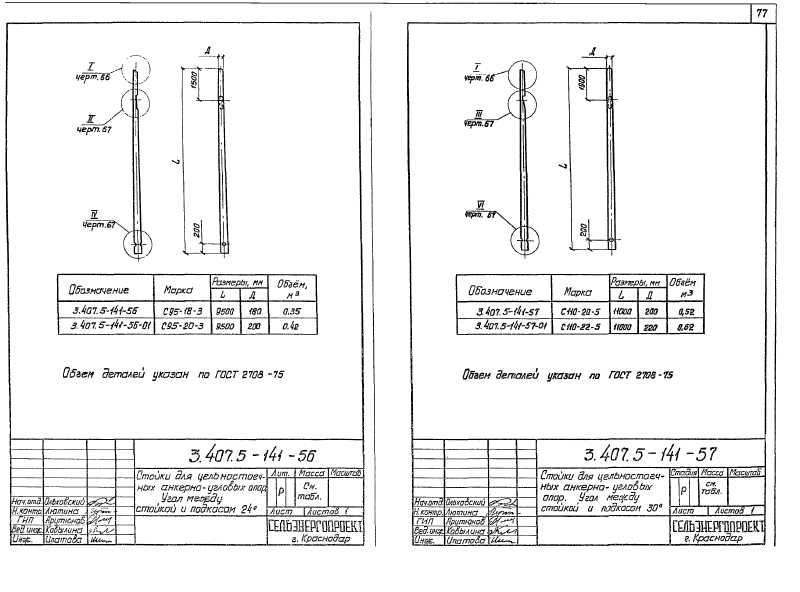 77
I
черт. 66
II
черт. 67
IV
черт. 67
Д
1500
L
200
Обозначение Марка Размеры, мм Объём, м3
L Д
3.407.5-141-56 С95-18-3 9500 180 0.35
3.407.5-141-56-01 С95-20-3 9500 200 0.42
Объем деталей указан по ГОСТ 2708-75
3.407.5-141-56
Стойки для цельностоеч-
ных анкерно-угловых опор
Угол между
стойкой и подкосом 24°
Лит. Масса Масштаб
Р См. табл.
Лист Листов 1
Нач.отд. Ольховский
Н.контр. Лютина
ГИП Арутюнов
Вед.инж. Ковылина
Инж. Ипатова
СЕЛЬЭНЕРГОПРОЕКТ
г. Краснодар
I
черт. 66
III
черт. 67
VI
Д
L
200
Обозначение Марка Размеры, мм Объём м3
L Д
3.407.5-141-57 С110-20-5 11000 200 0,52
3.407.5-141-57-01 С110-22-5 11000 220 0,62
Объем деталей указан по ГОСТ 2708-75
3.407.5-141-57
Стойки для цельностоеч-
ных анкерно-угловых
опор. Угол между
стойкой и подкосом 30°
Стадия Масса Масштаб
Р см. табл.
Лист Листов 1
Нач.отд Ольховский
Н.контр. Лютина
ГИП Арутюнов
Вед.инж Ковылина
Инж. Ипатова
СЕЛЬЭНЕРГОПРОЕКТ
г. Краснодар